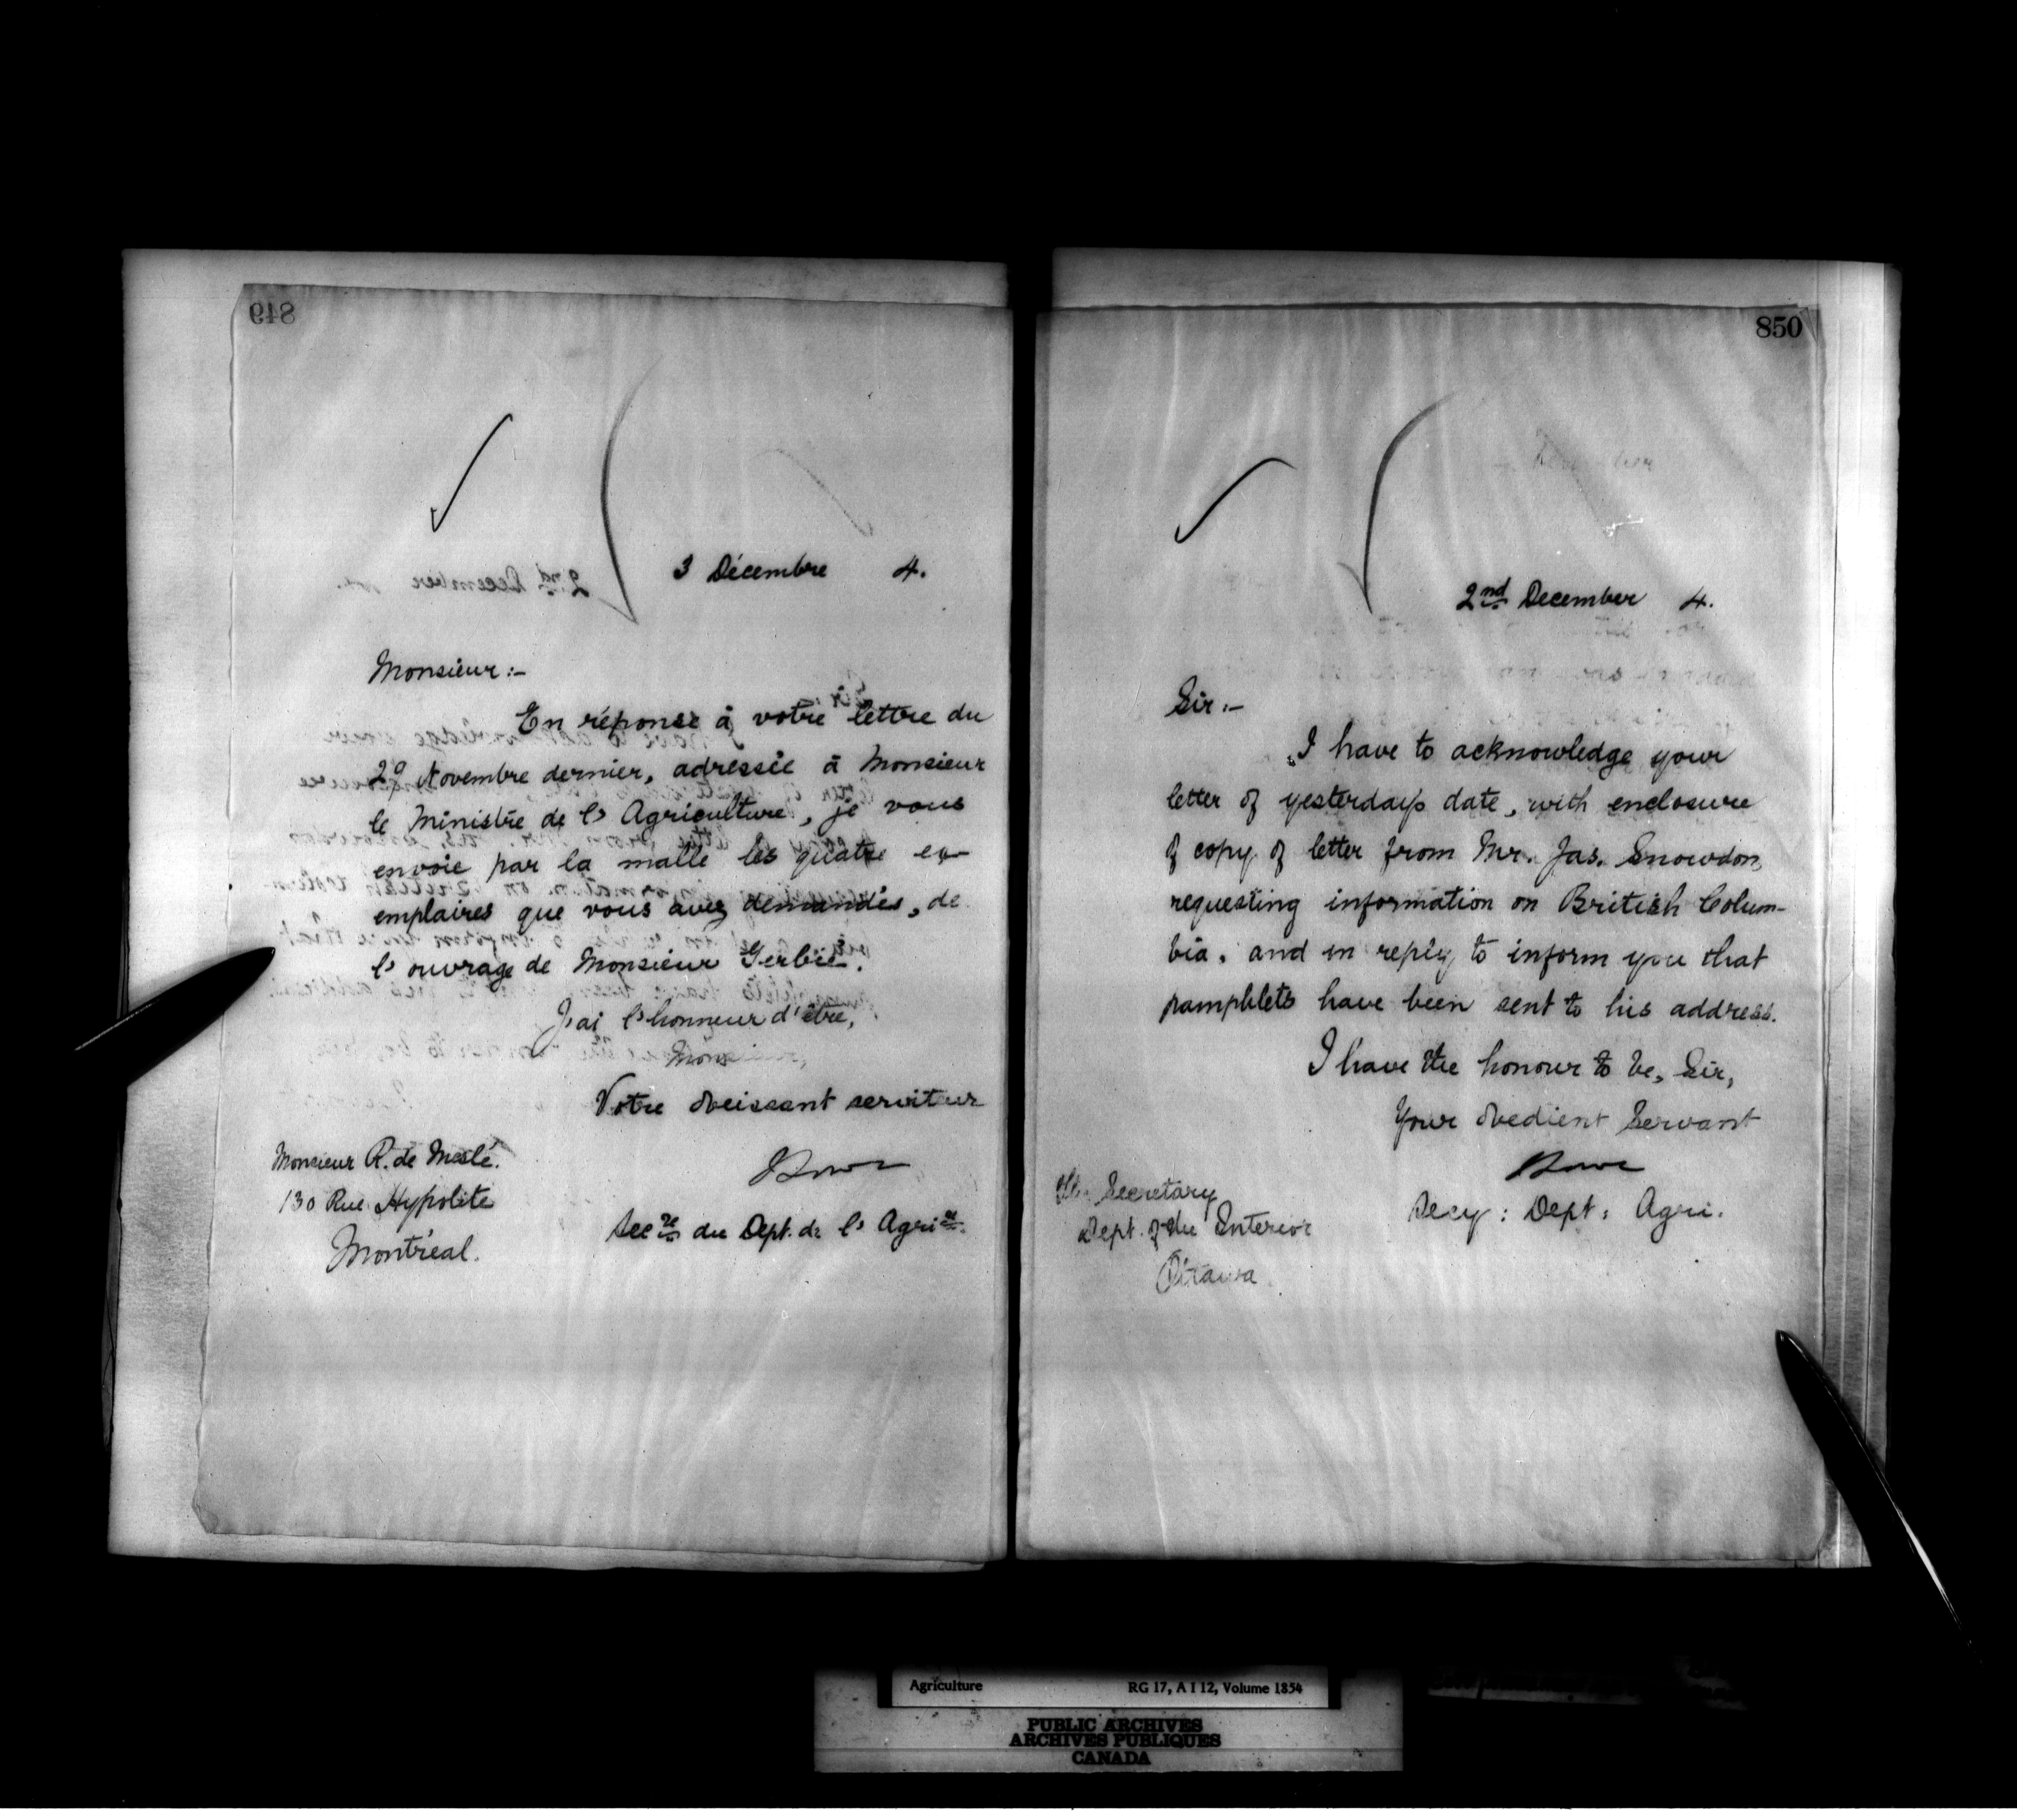 849
3 Décembre 4.
Monsieur :-
En réponse à votre lettre du
29 Novembre dernier, adressée à Monsieur
le Ministre de l'Agriculture, je vous
envoie par la malle les quatre ex-
emplaires que vous avez demandés, de
l'ouvrage de Monsieur Gerbié.
J'ai l'honneur d'être,
Mons
Votre obeissant serviteur
Secre du Dept. de l'Agrire.
Monsieur R. de Meslé.
130 Rue Hypolite
Montréal.
850
2nd December 4.
Sir :-
I have to acknowledge your
letter of yesterday's date, with enclosure
of copy of letter from Mr. Jas. Snowdon,
requesting information on British Colum-
bia, and in reply to inform you that
pamphlets have been sent to his address.
I have the honour to be, Sir,
Your obedient Servant
Secy : Dept : Agri.
The Secretary
Dept. of the Interior
Ottawa
Agriculture RG 17, A I 12, Volume 1854
PUBLIC ARCHIVES
ARCHIVES PUBLIQUES
CANADA